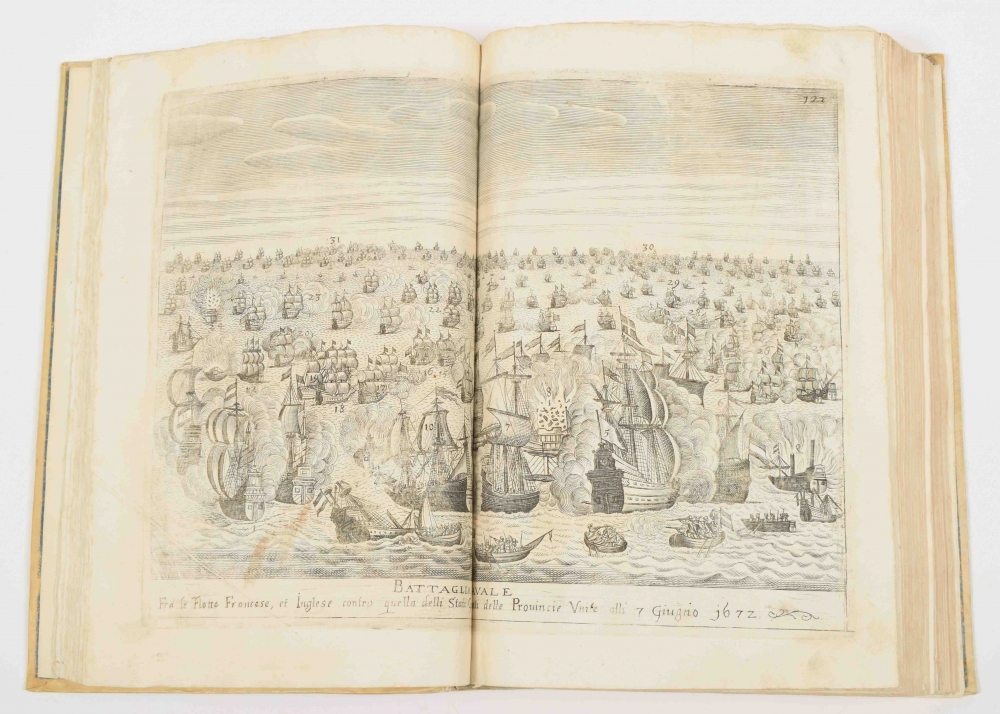 122
31
30
29
23
22
16
17
18
10
7
8
BATTAGLIA VALE
Fra le Flotte Francese, et Inglese contro quella delli Stati delle Provincie Vnite alli 7 Giugno 1672